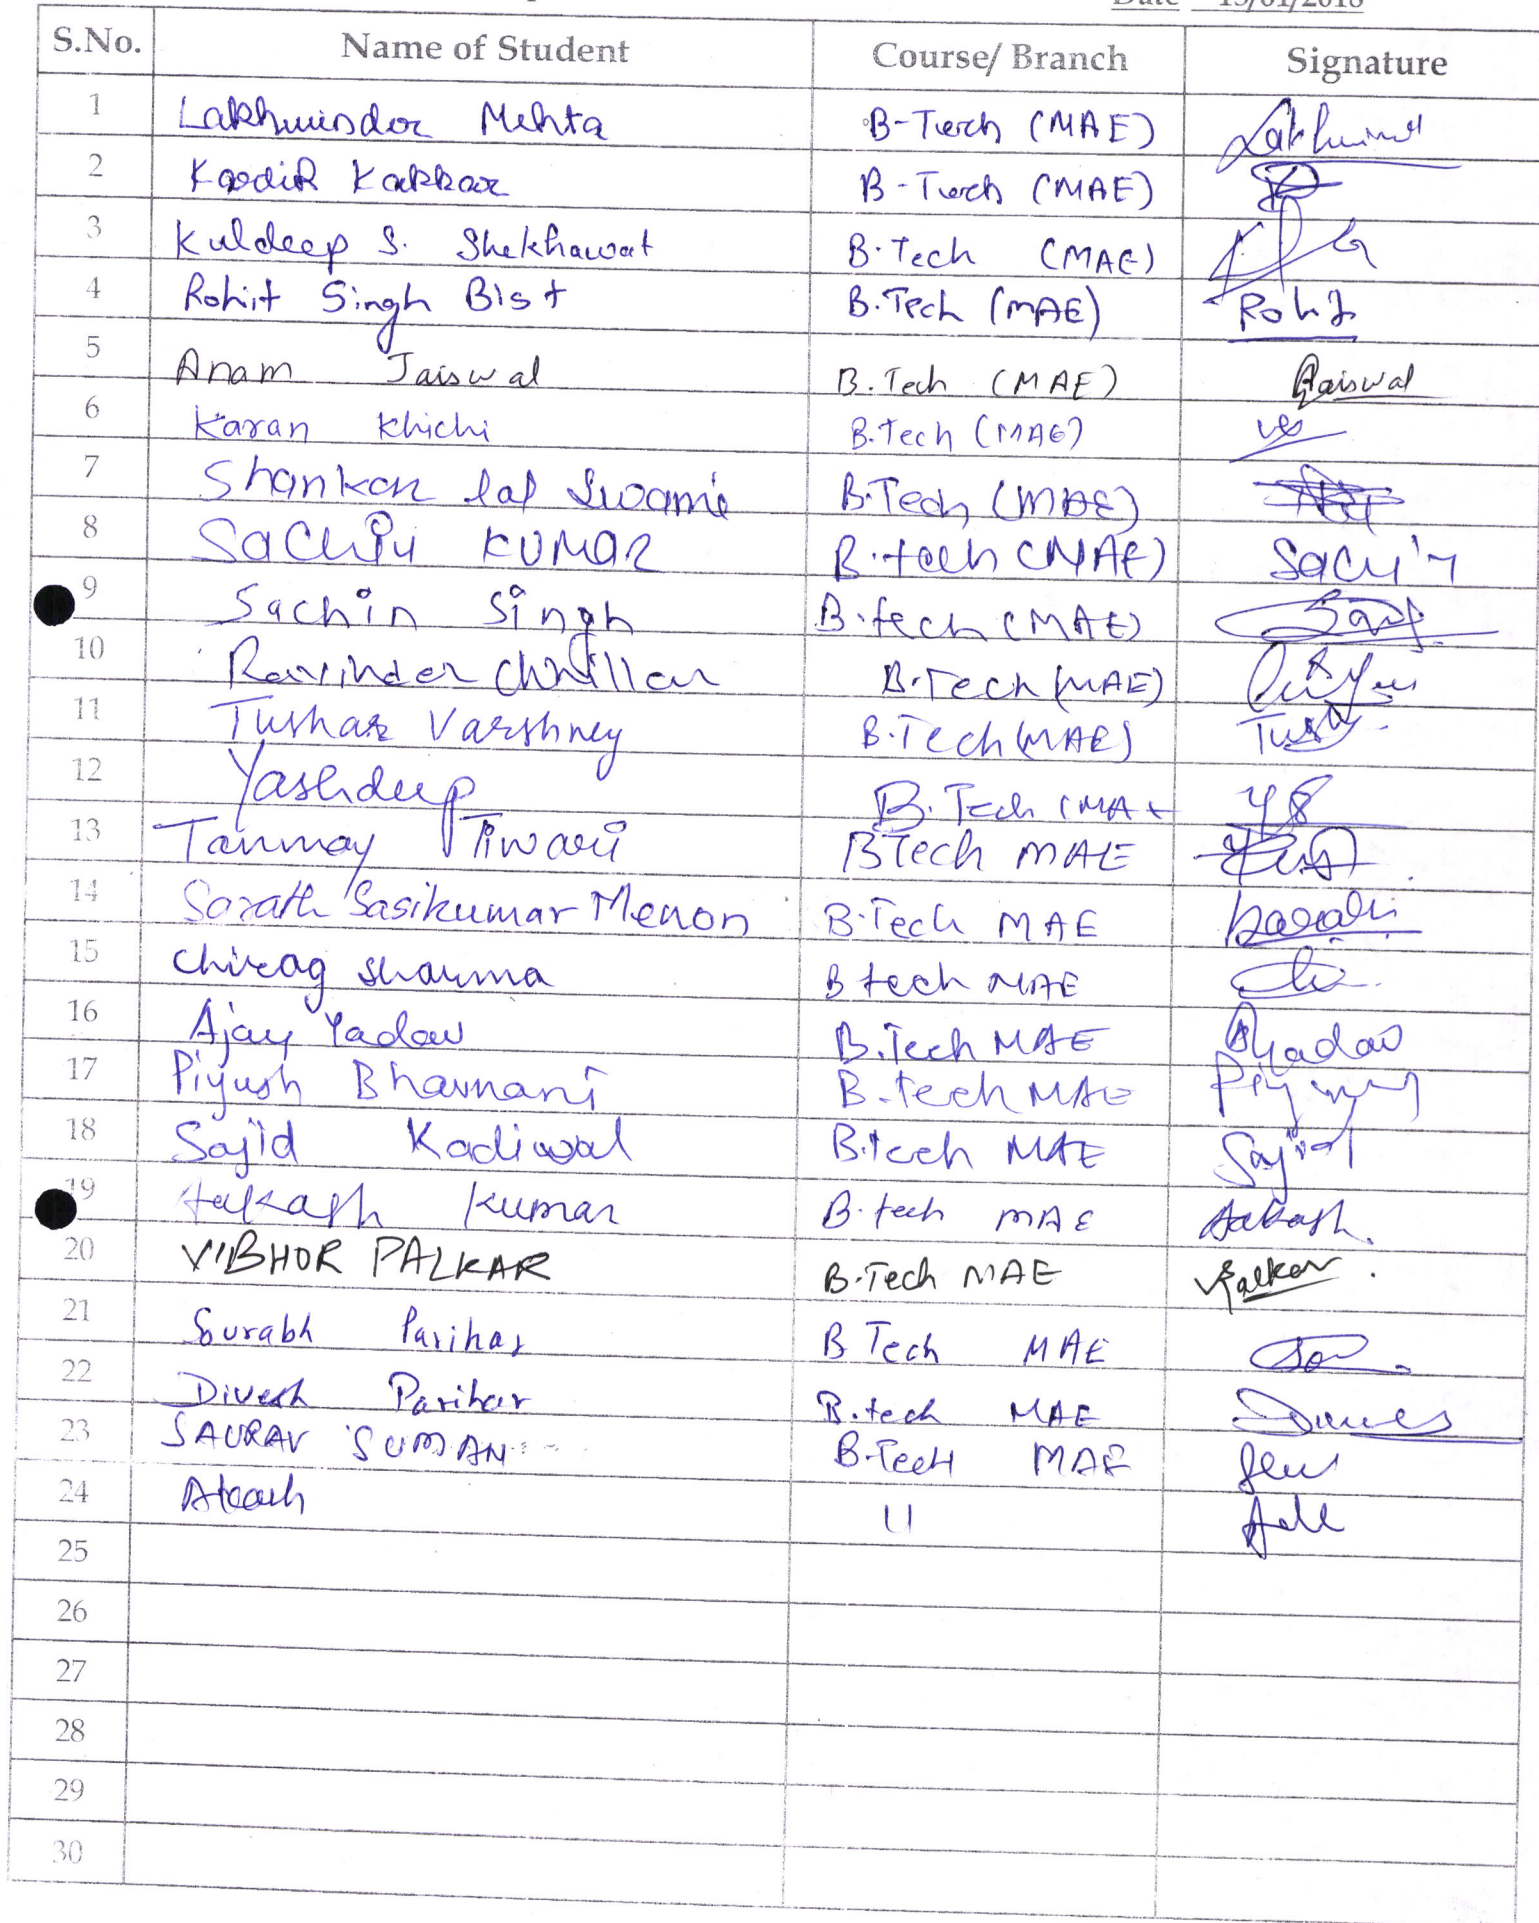 S.No. Name of Student Course/ Branch Signature
1 Lakhwinder Mehta B-Tech (MAE) Lakhwind
2 Kakkar B-Tech (MAE)
3 Kuldeep S. Shekhawat B.Tech (MAE)
4 Rohit Singh Bist B.Tech (MAE) Rohit
5 Anam Jaiswal B.Tech (MAE) Jaiswal
6 Karan Khichi B.Tech (MAE)
7 Shankar lal Swami B.Tech (MAE)
8 Sachin KUMAR B.tech (MAE) Sachin
9 Sachin Singh B.tech (MAE)
10 Ravinder Chhillar B.Tech (MAE)
11 Tushar Varshney B.Tech (MAE) Tush
12 Yashdeep B.Tech (MAE
13 Tanmay Tiwari BTech MAE
14 Sarath Sasikumar Menon B.Tech MAE Sarath
15 Chirag Sharma B tech MAE
16 Ajay Yadav B.Tech MAE AYadav
17 Piyush Bhavnani B.tech MAE Piyush
18 Sajid Kadiwal B.tech MAE Sajid
19 Aakash Kumar B.tech MAE Aakash.
20 VIBHOR PALKAR B.Tech MAE VPalkar.
21 Sourabh Parihar B Tech MAE
22 Divesh Parihar B.tech MAE Divesh
23 SAURAV SUMAN B.Tech MAE
24
25
26
27
28
29
30